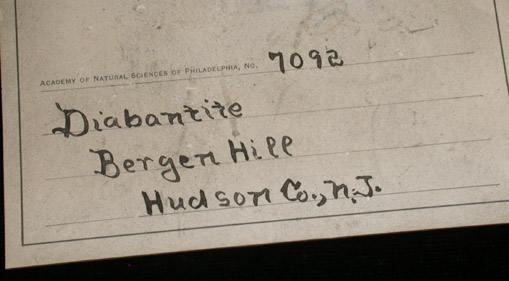 ACADEMY OF NATURAL SCIENCES OF PHILADELPHIA, NO. 7092
Diabantite
Bergen Hill
Hudson Co., N.J.